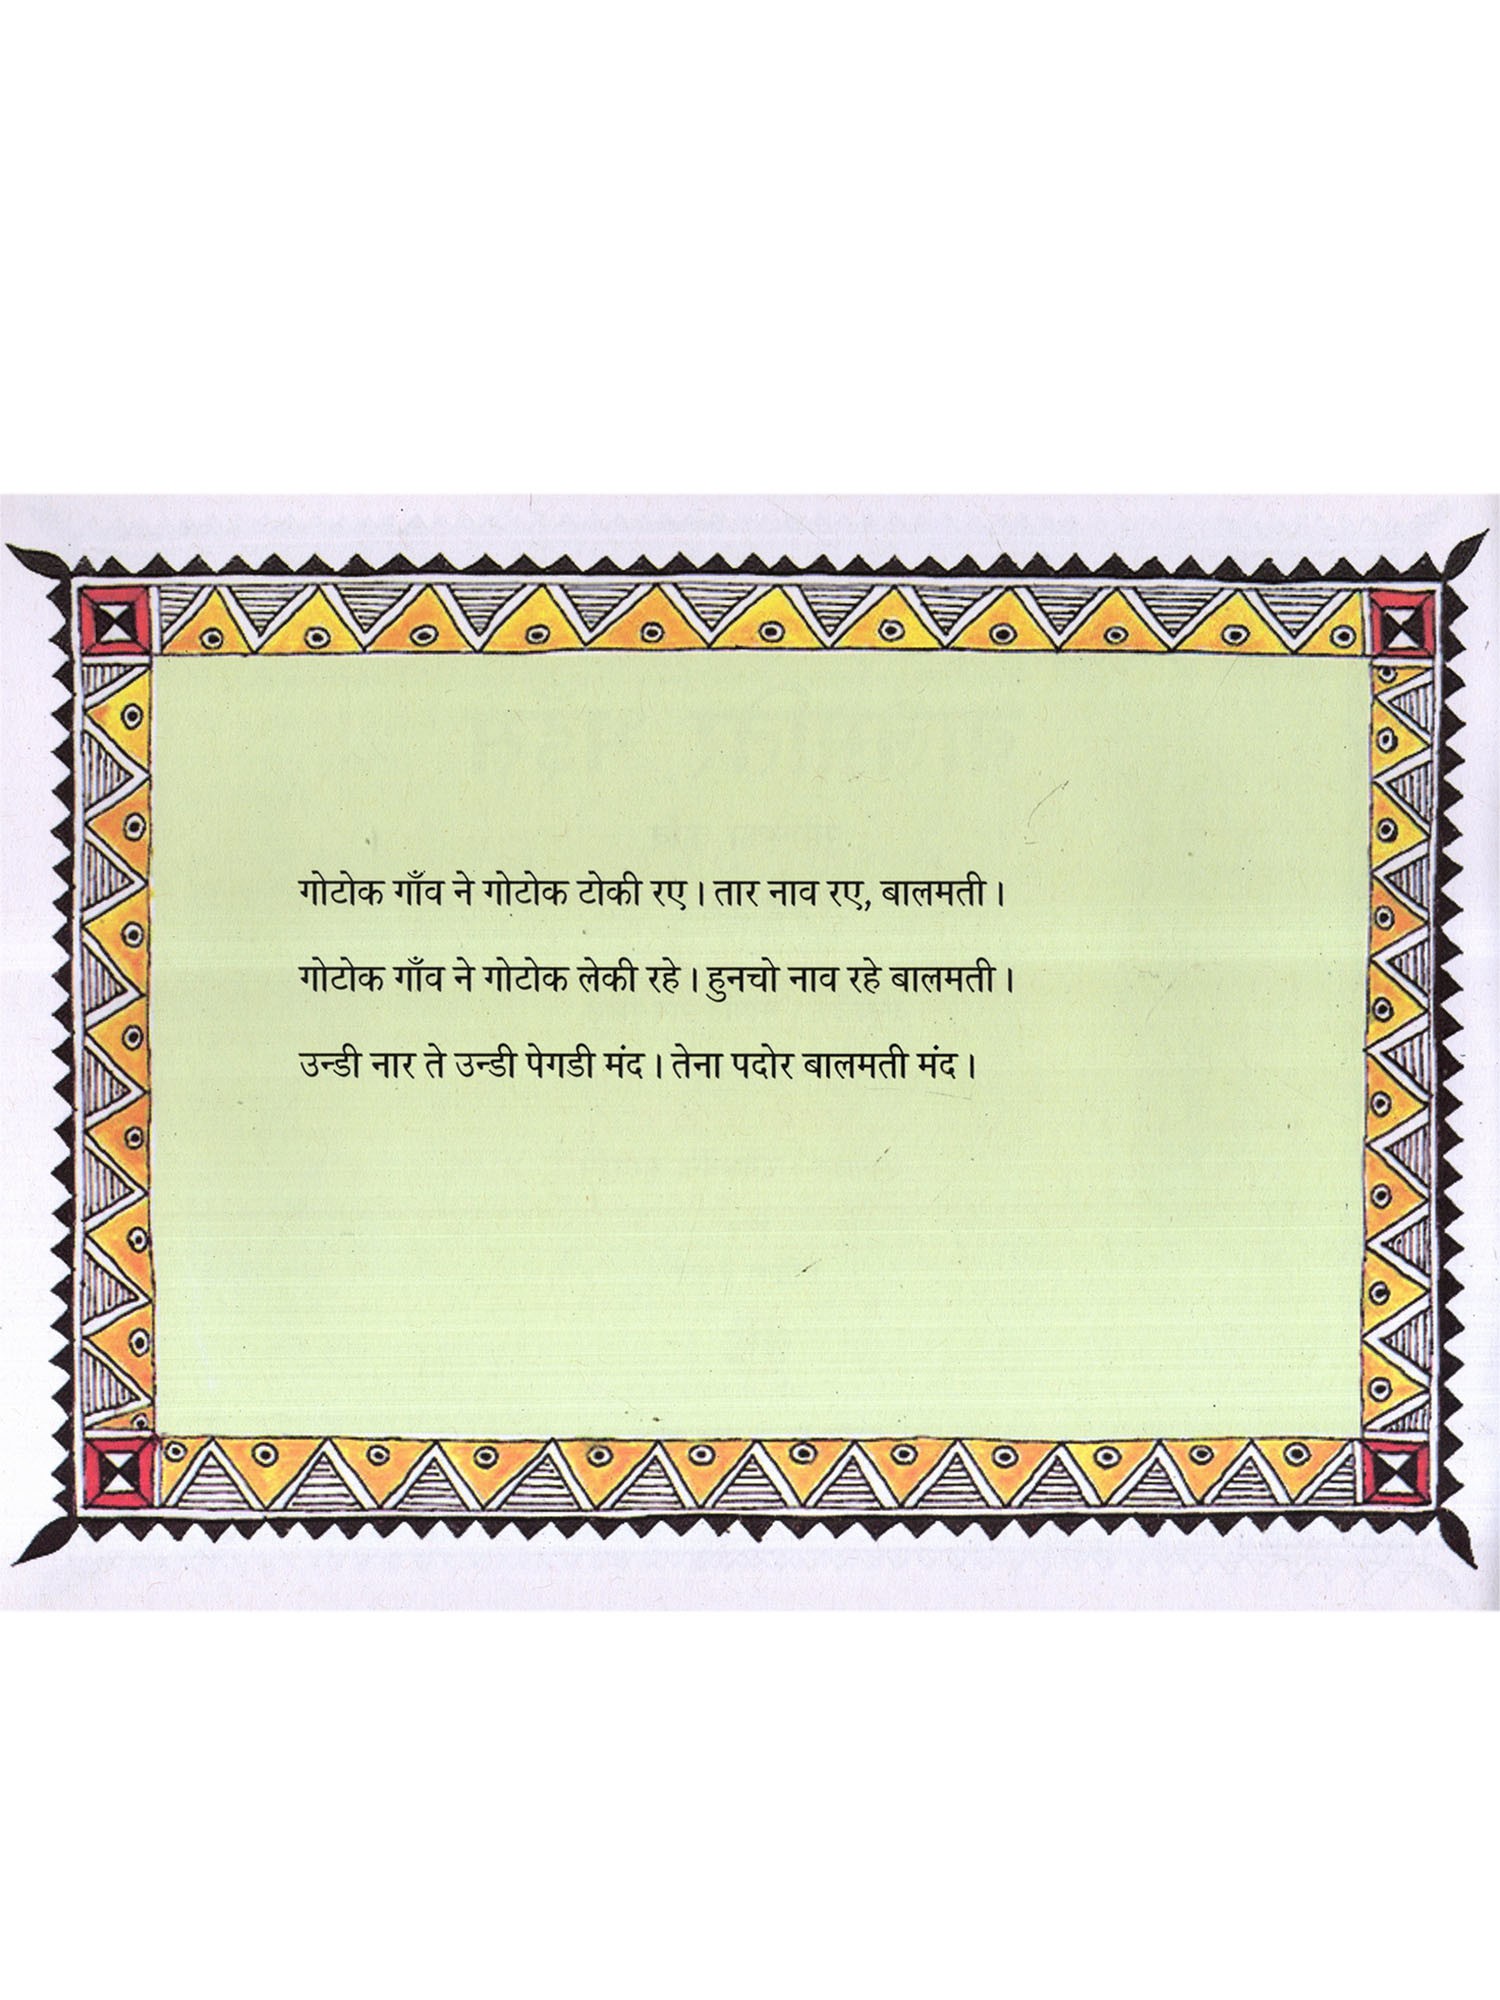 गोटोक गाँव ने गोटोक टोकी रए। तार नाव रए, बालमती।
गोटोक गाँव ने गोटोक लेकी रहे। हुनचो नाव रहे बालमती।
उन्डी नार ते उन्डी पेगडी मंद। तेना पदोर बालमती मंद।